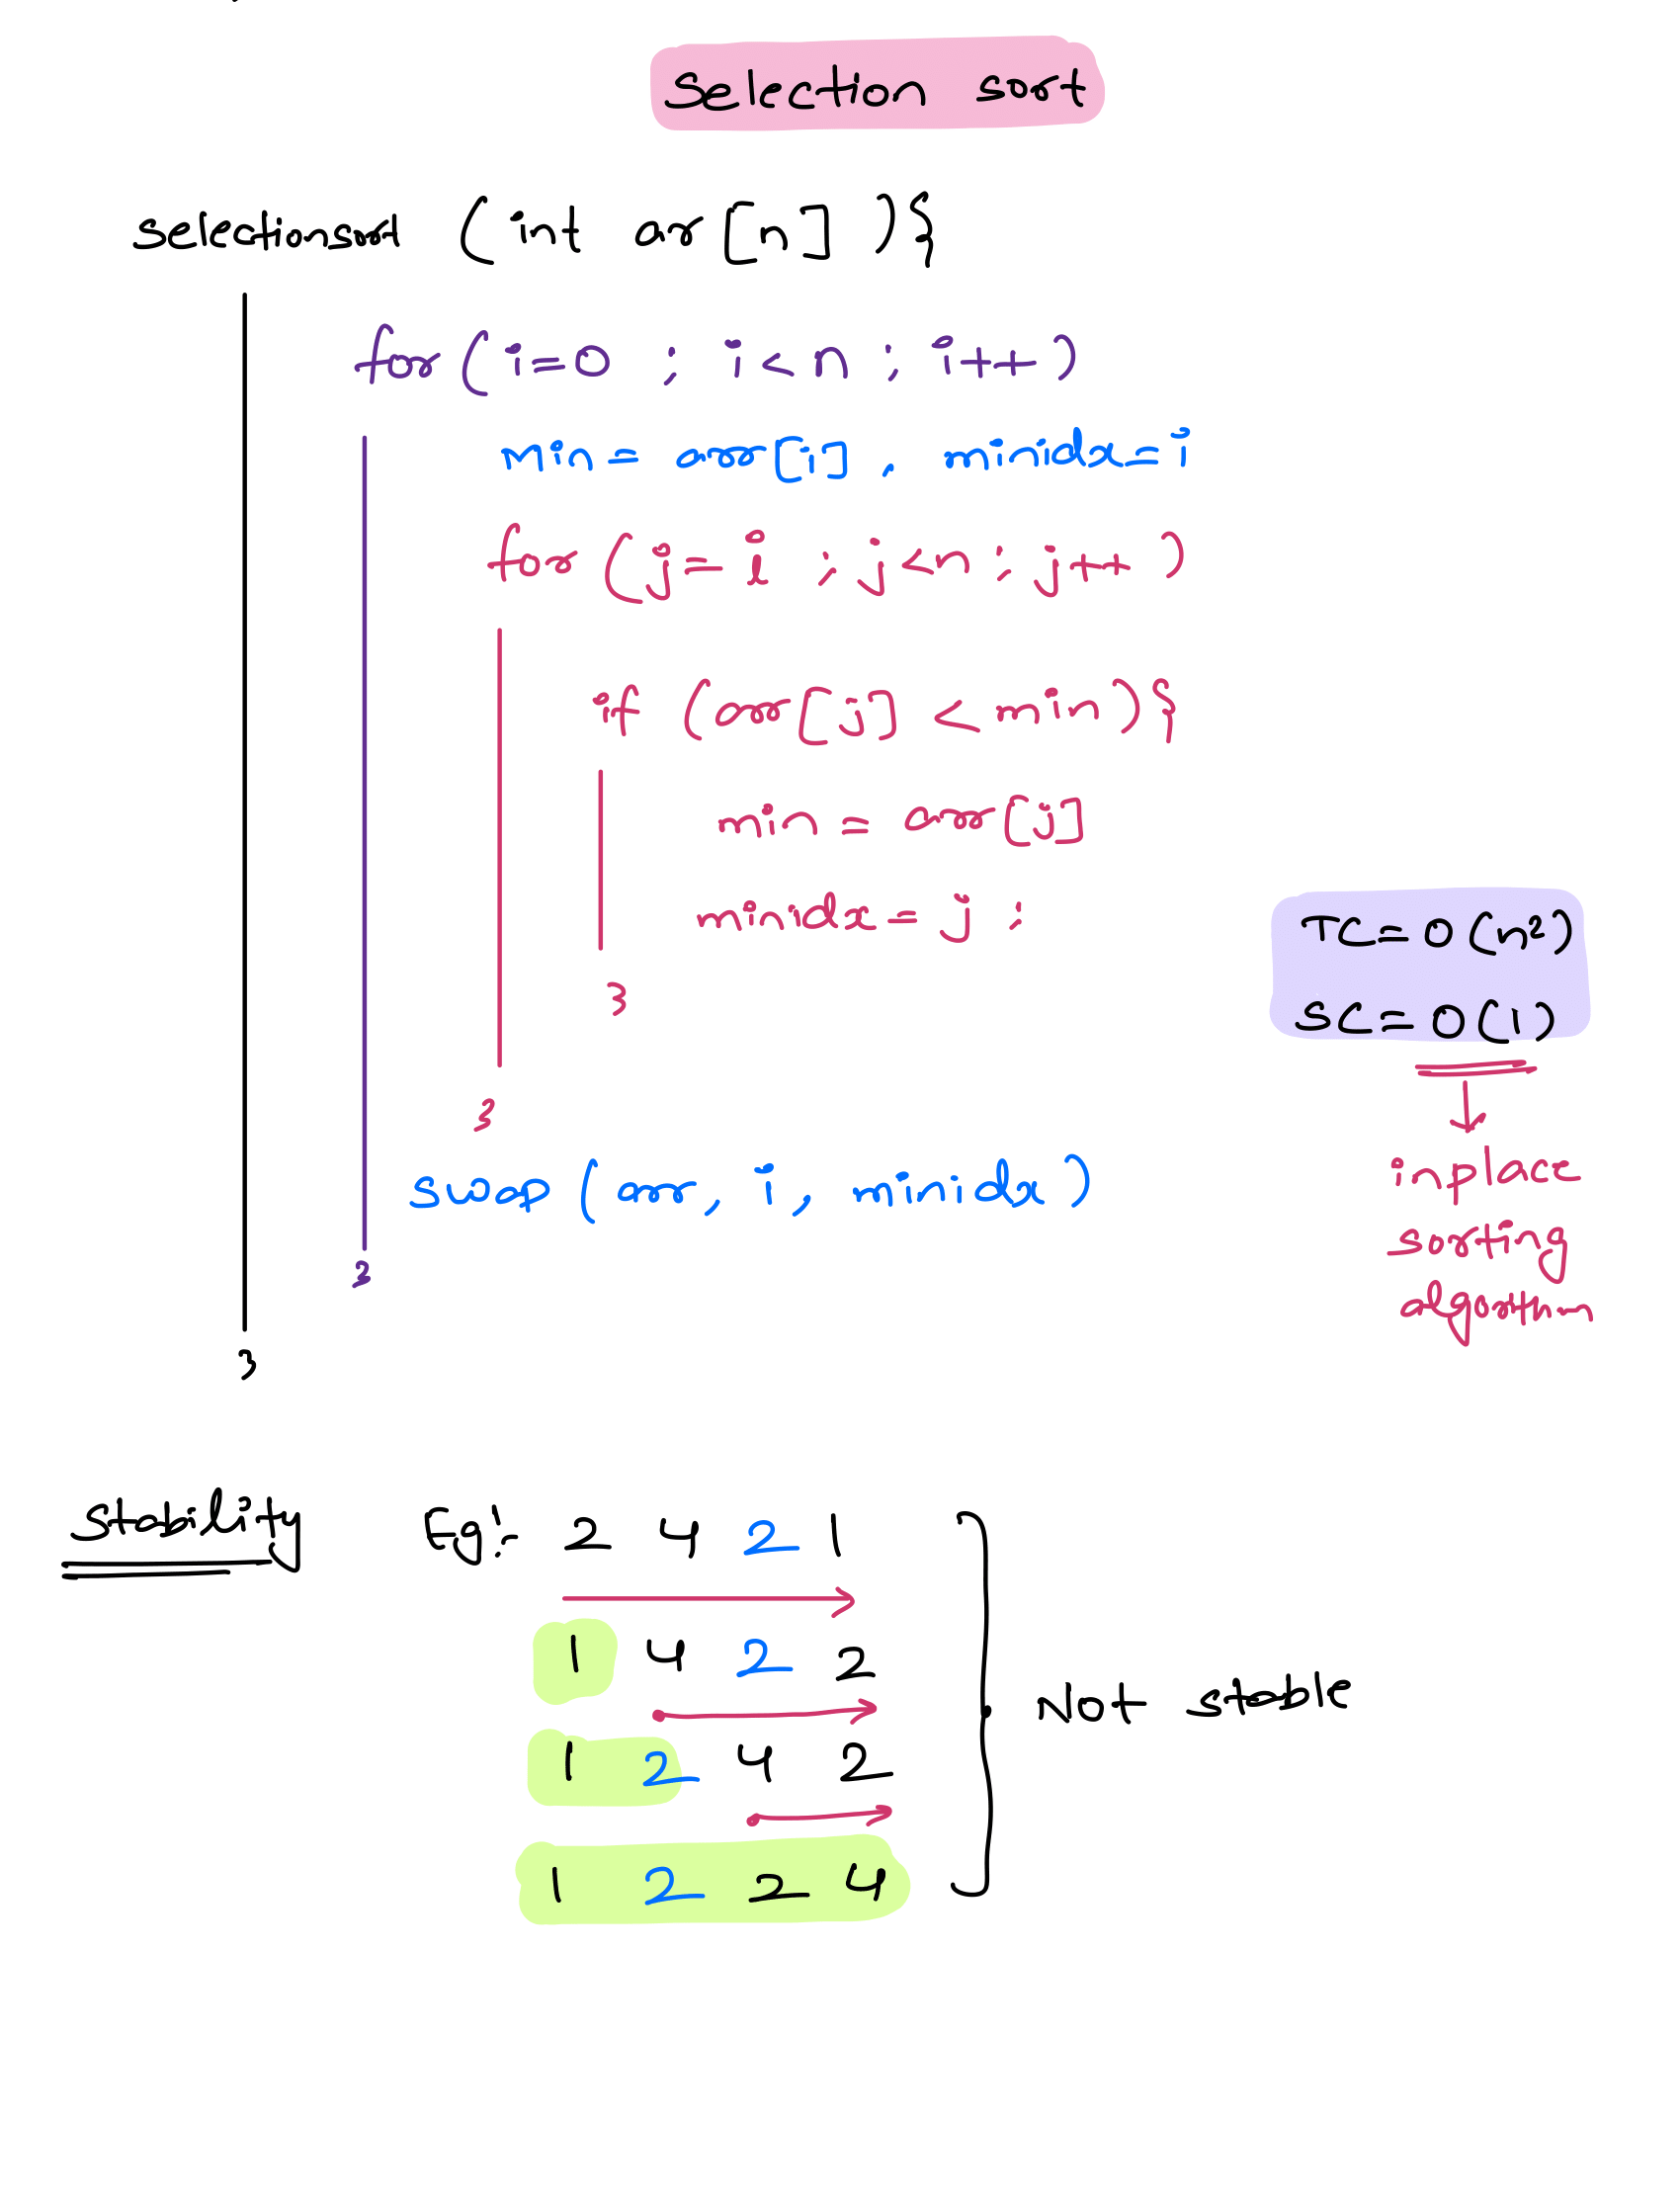 Selection sort
selectionsort (int ar[n] ){
for(i=0 ; i<n ; i++)
min = arr[i] , minidx=i
for (j=i ; j<n ; j++ )
if (arr[j] <min){
min = arr[j]
minidx = j ;
}
}
swap (arr, i, minidx)
}
}
TC=O(n²)
SC=O(1)
inplace
sorting
algorithm
Stability Eg:- 2 4 2 1
1 4 2 2
1 2 4 2
1 2 2 4
Not stable